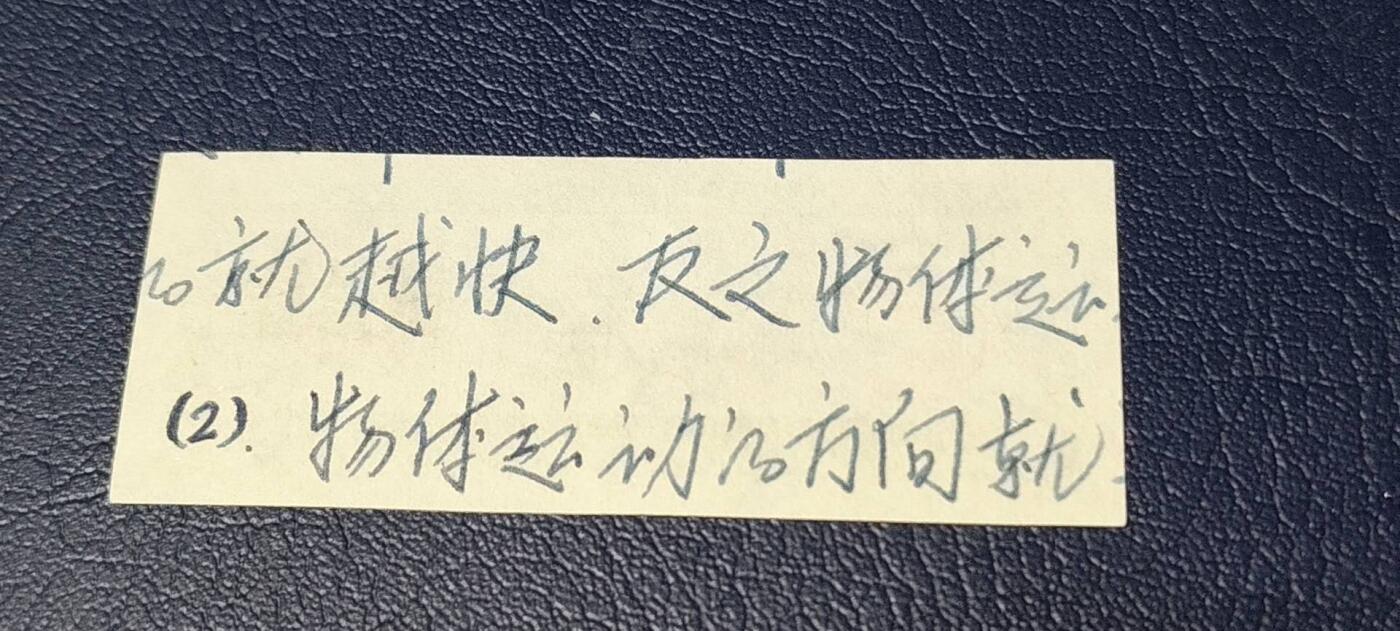 的就越快.反之物体运
(2).物体运动的方向就